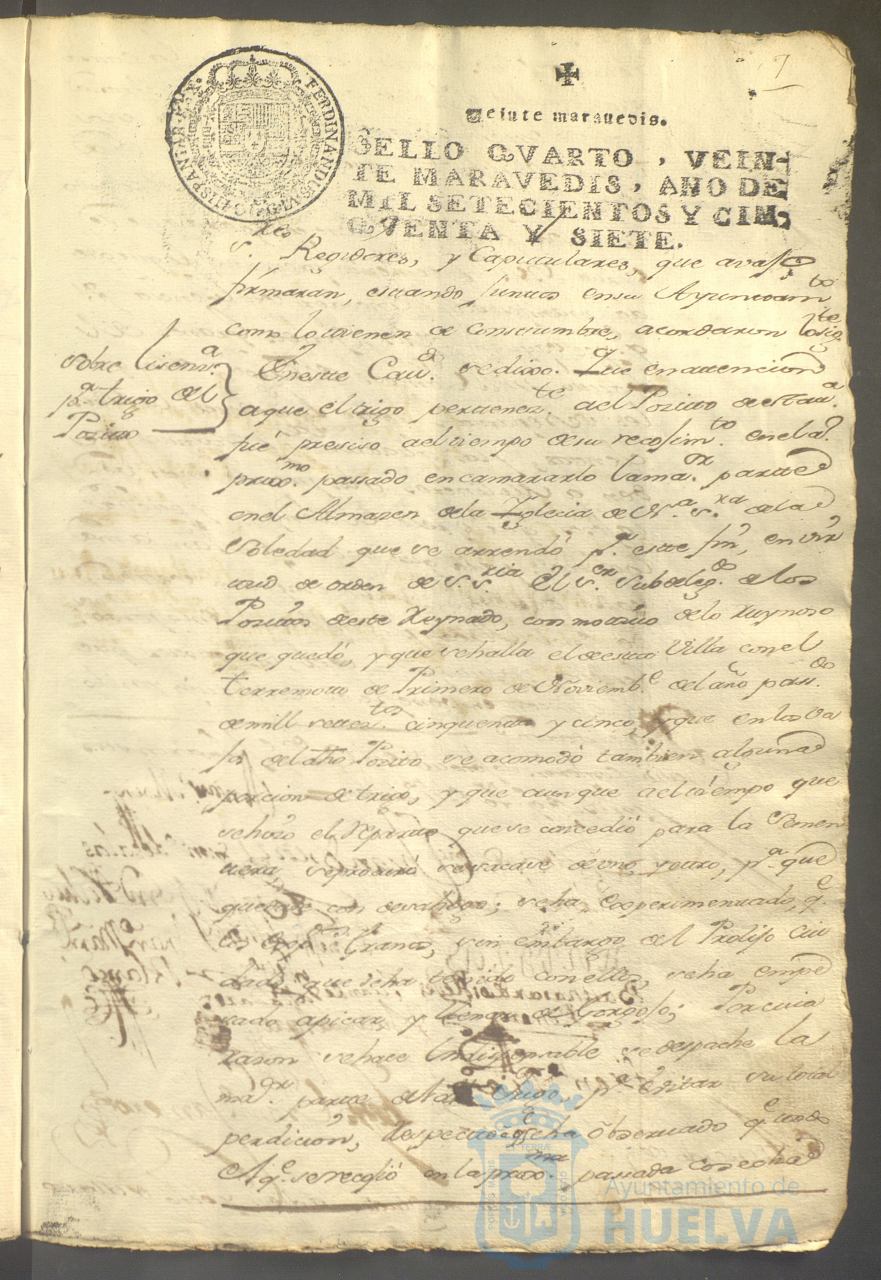 7
HISPANIAR. REX. FERDINANDUS VI D G
Veinte maravedis.
SELLO QVARTO, VEIN-
TE MARAVEDIS, AÑO DE
MIL SETECIENTOS Y CIN,
QVENTA Y SIETE.
Regidores, y Capitulares, que avajo
firmaran, estando juntos en su Ayuntoam.to
como lo tienen de constumbre, acordaron lo sig.te
sobre lisen.a
p.a trigo del
Posito
En este Cav.do se dixo. Que en atencion
a que el trigo pertenez.te al Posito de esta v.a
fué presiso al tiempo de su recojim.to en el a.o
prox.mo passado encamararlo la ma.or parte
en el Almazen de la Yglecia de N.a S.ra de la
Soledad que se arrendó p.a este fin, en vir
tud de orden de S. S.ria el S.or Subdeleg.do de los
Positos de este Reynado, con motivo de lo Ruynoso
que quedó, y que se halla el de esta Villa con el
terremoto de Primero de Noviemb.e del año pass.do
de mill setez.tos cinquenta y cinco, y que en los va
jos del dho Posito se acomodó tambien alguna
porcion de trigo, y que aunque al tiempo que
se hizo el Reparto que se concedió para la Semen
tera, se procuró se sacase de uno, y otro, p.a que
quedase con desahogo; se ha experimentado, q.e
Granos, sin embargo del Prolijo cui
dado que se ha tenido con ellos, se ha empe
zado a picar y llenar de Gorgojo; Por cuia
razon se hace Yndispensable, se despache la
ma.or parte de dho trigo, p.a evitar su total
perdicion, respecto a q.e se ha observado q.e todo
A q.e se recojió en la prox.ma passada cosecha
Ayuntamiento de
HUELVA